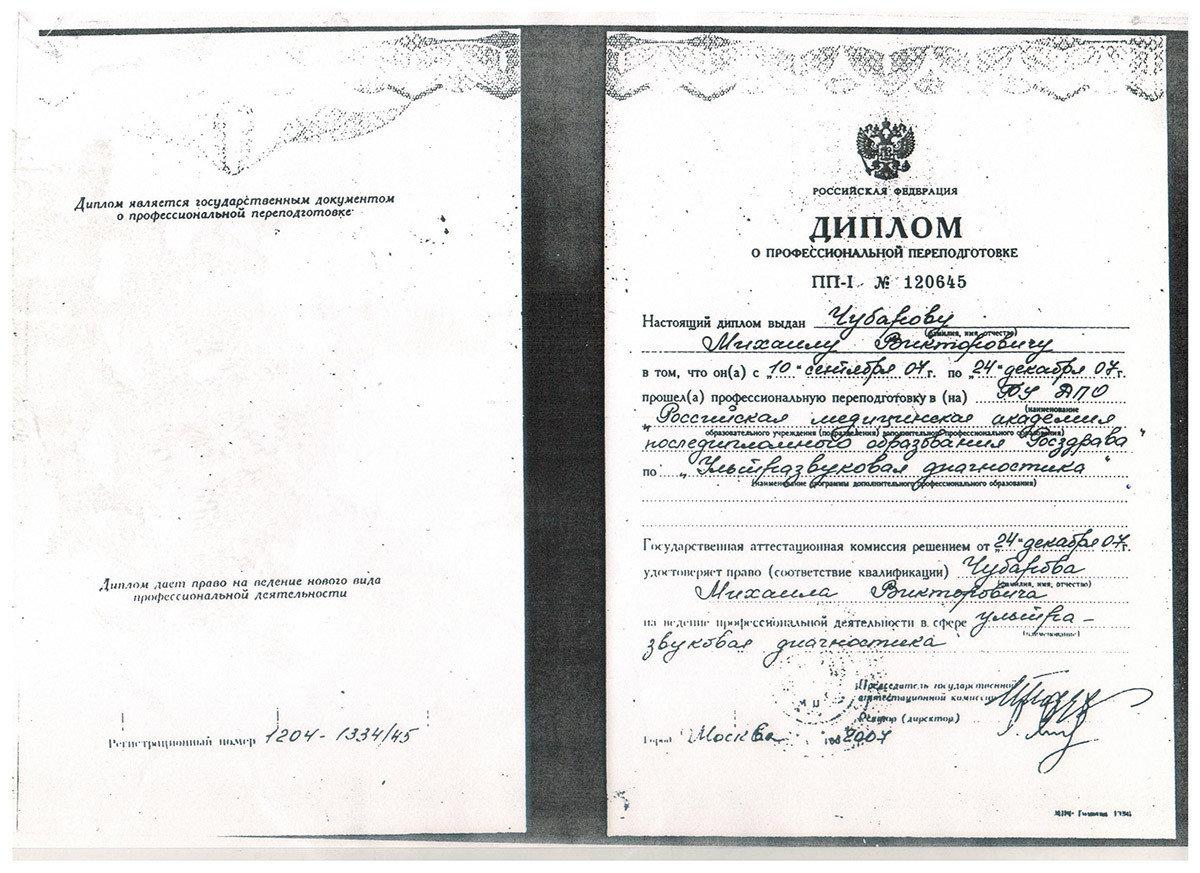 Диплом является государственным документом
о профессиональной переподготовке
Диплом дает право на ведение нового вида
профессиональной деятельности
Регистрационный номер 1204-1334/45
РОССИЙСКАЯ ФЕДЕРАЦИЯ
ДИПЛОМ
О ПРОФЕССИОНАЛЬНОЙ ПЕРЕПОДГОТОВКЕ
ПП-I № 120645
Настоящий диплом выдан Чубарову
(фамилия, имя, отчество)
Михаилу Викторовичу
в том, что он(а) с „10" сентября 07 г. по „24" декабря 07 г.
прошел(а) профессиональную переподготовку в (на) ГОУ ДПО
(наименование
„Российская медицинская академия
образовательного учреждения (подразделения) дополнительного профессионального образования)
последипломного образования Росздрава"
по „Ультразвуковая диагностика"
(наименование программы дополнительного профессионального образования)
Государственная аттестационная комиссия решением от „24" декабря 07 г.
удостоверяет право (соответствие квалификации) Чубарова
(фамилия, имя, отчество)
Михаила Викторовича
на ведение профессиональной деятельности в сфере ультра-
(наименование)
звуковая диагностика
Председатель государственной
аттестационной комиссии
Ректор (директор)
Город Москва 2007